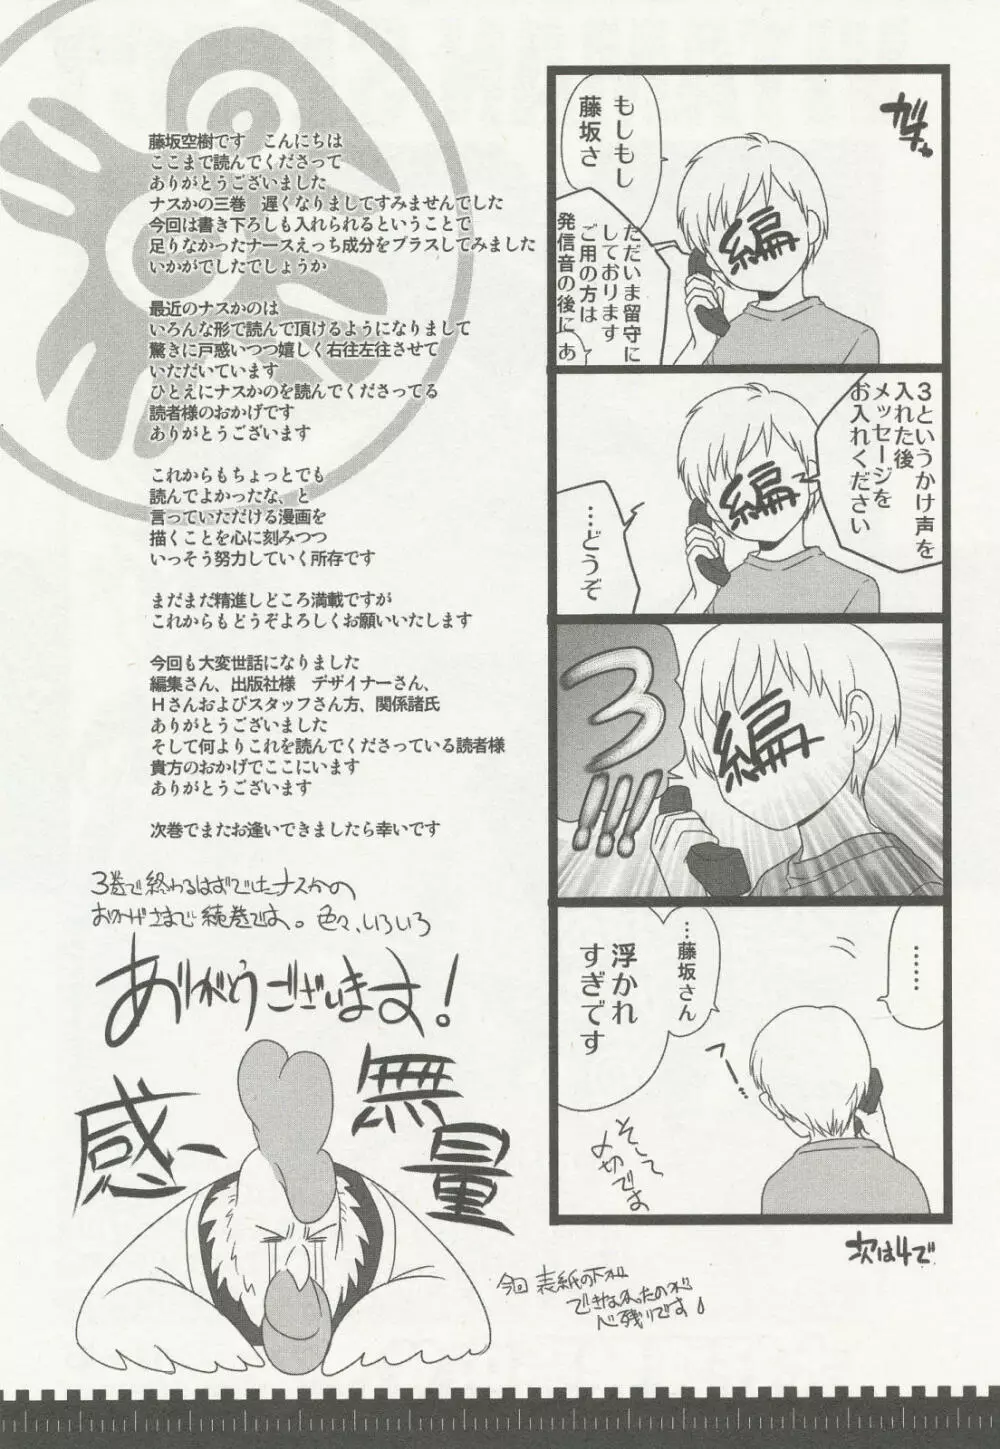 ガチャ
もしもし
藤坂さ
ただいま留守に
しております
ご用の方は
発信音の後に あ
編
3というかけ声を
入れた後
メッセージを
お入れください
編
…どうぞ
3
!!!
編
……
…藤坂さん
浮かれ
すぎです
そして
〆切です
次は4で
藤坂空樹です　こんにちは
ここまで読んでくださって
ありがとうございました
ナスかの三巻　遅くなりましてすみませんでした
今回は書き下ろしも入れられるということで
足りなかったナースえっち成分をプラスしてみました
いかがでしたでしょうか
最近のナスかのは
いろんな形で読んで頂けるようになりまして
驚きに戸惑いつつ嬉しく右往左往させて
いただいています
ひとえにナスかのを読んでくださってる
読者様のおかげです
ありがとうございます
これからもちょっとでも
読んでよかったな、と
言っていただける漫画を
描くことを心に刻みつつ
いっそう努力していく所存です
まだまだ精進しどころ満載ですが
これからもどうぞよろしくお願いいたします
今回も大変世話になりました
編集さん、出版社様　デザイナーさん、
Hさんおよびスタッフさん方、関係諸氏
ありがとうございました
そして何よりこれを読んでくださっている読者様
貴方のおかげでここにいます
ありがとうございます
次巻でまたお逢いできましたら幸いです
3巻で終わるはずでしたナスかの
おかげさまで続巻です。色々、いろいろ
ありがとうございます!
感
無
量
今回 表紙の下ネタ
できなかったのが
心残りです